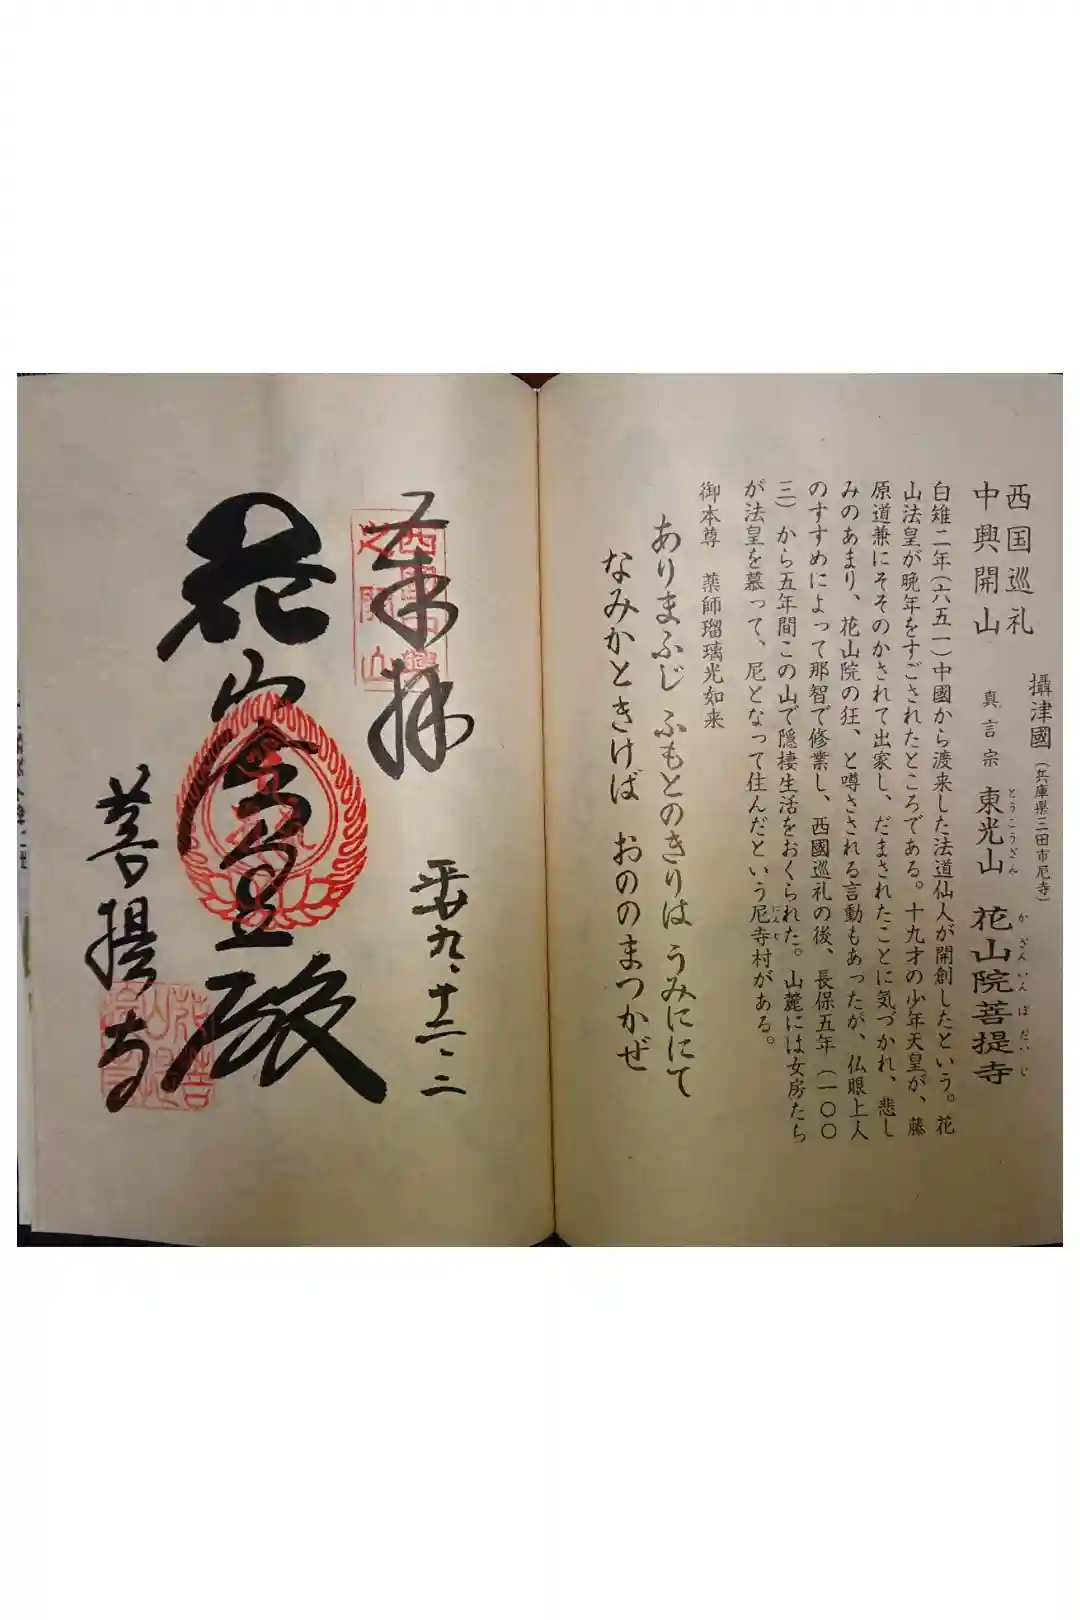 攝津國(兵庫県三田市尼寺)
西国巡礼
中興開山
真言宗 東光山 花山院菩提寺
とうこうざん かざんいんぼだいじ
白雉二年(六五一)中國から渡来した法道仙人が開創したという。花
山法皇が晩年をすごされたところである。十九才の少年天皇が、藤
原道兼にそそのかされて出家し、だまされたことに気づかれ、悲し
みのあまり、花山院の狂、と噂さされる言動もあったが、仏眼上人
のすすめによって那智で修業し、西國巡礼の後、長保五年(一〇〇
三)から五年間この山で隠棲生活をおくられた。山麓には女房たち
が法皇を慕って、尼となって住んだという尼寺村がある。
にんじ
御本尊 薬師瑠璃光如来
ありまふじ ふもとのきりは うみににて
なみかときけば おののまつかぜ
奉拝 平廿九、十二、二
西国中興
之開山
花山
殿
菩提寺
花山院菩